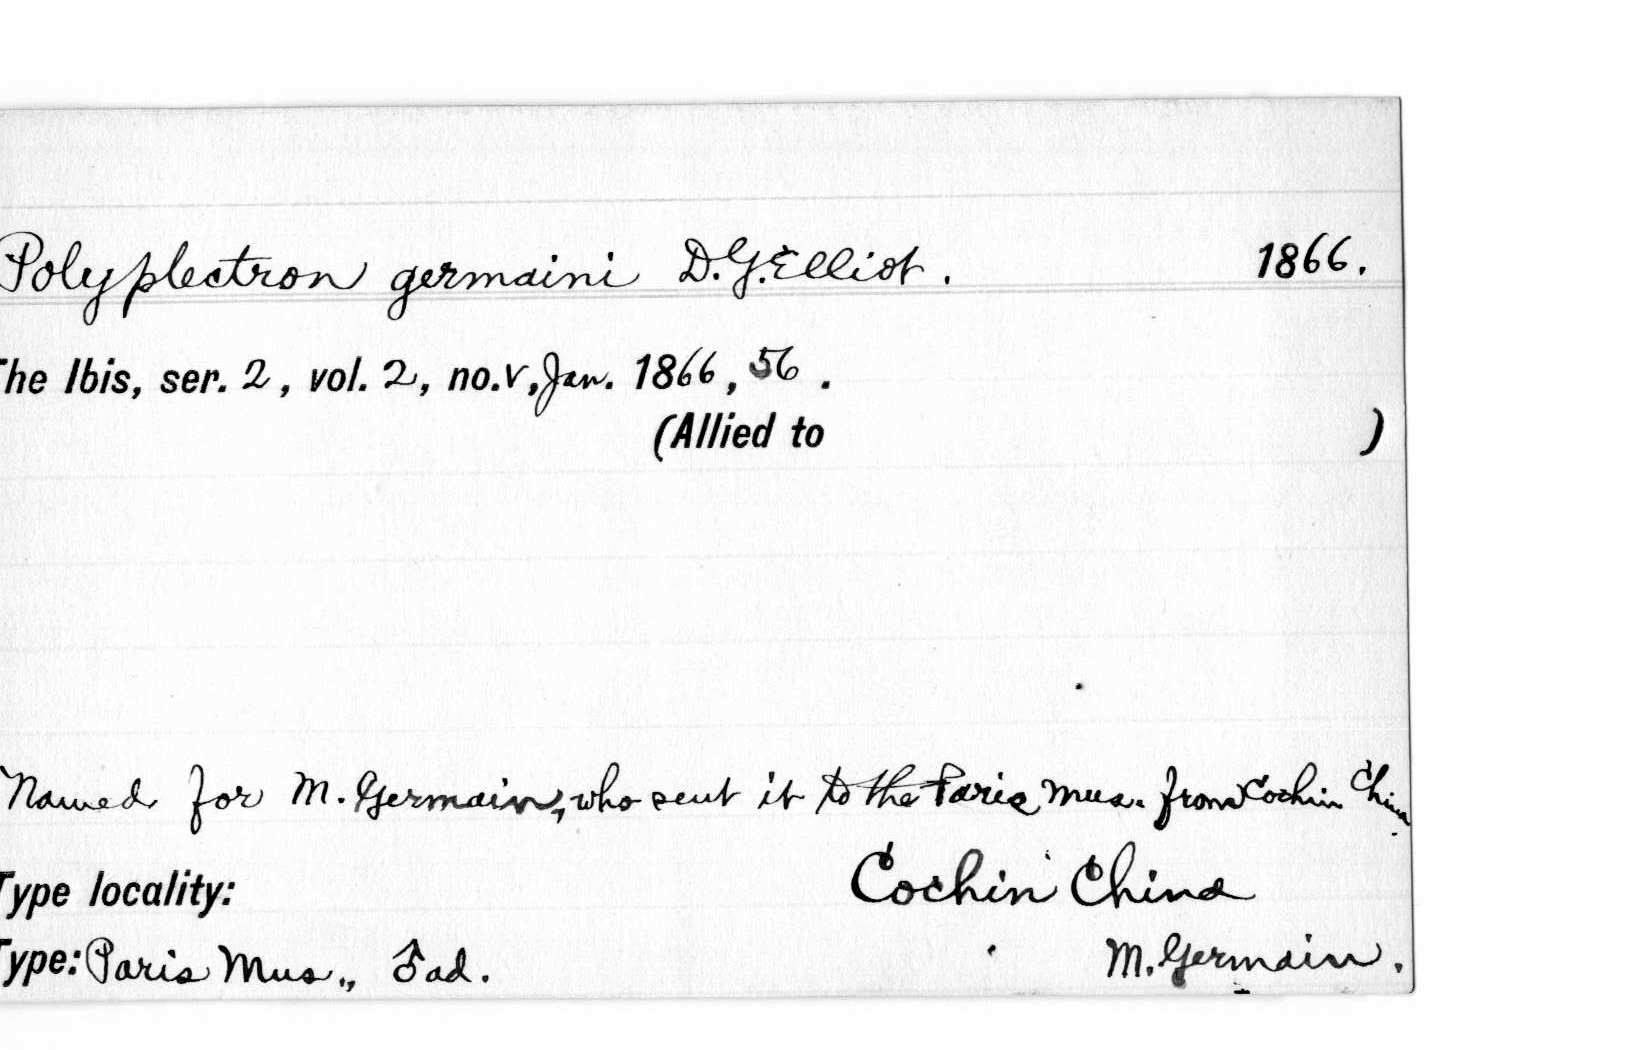 Polyplectron germaini D.G.Elliot. 1866.
The Ibis, ser. 2, vol. 2, no.V, Jan. 1866, 56.
(Allied to )
Named for M. Germain, who sent it to the Paris Mus. from Cochin China.
Type locality: Cochin China
Type: Paris Mus., ♂ad. M. Germain.